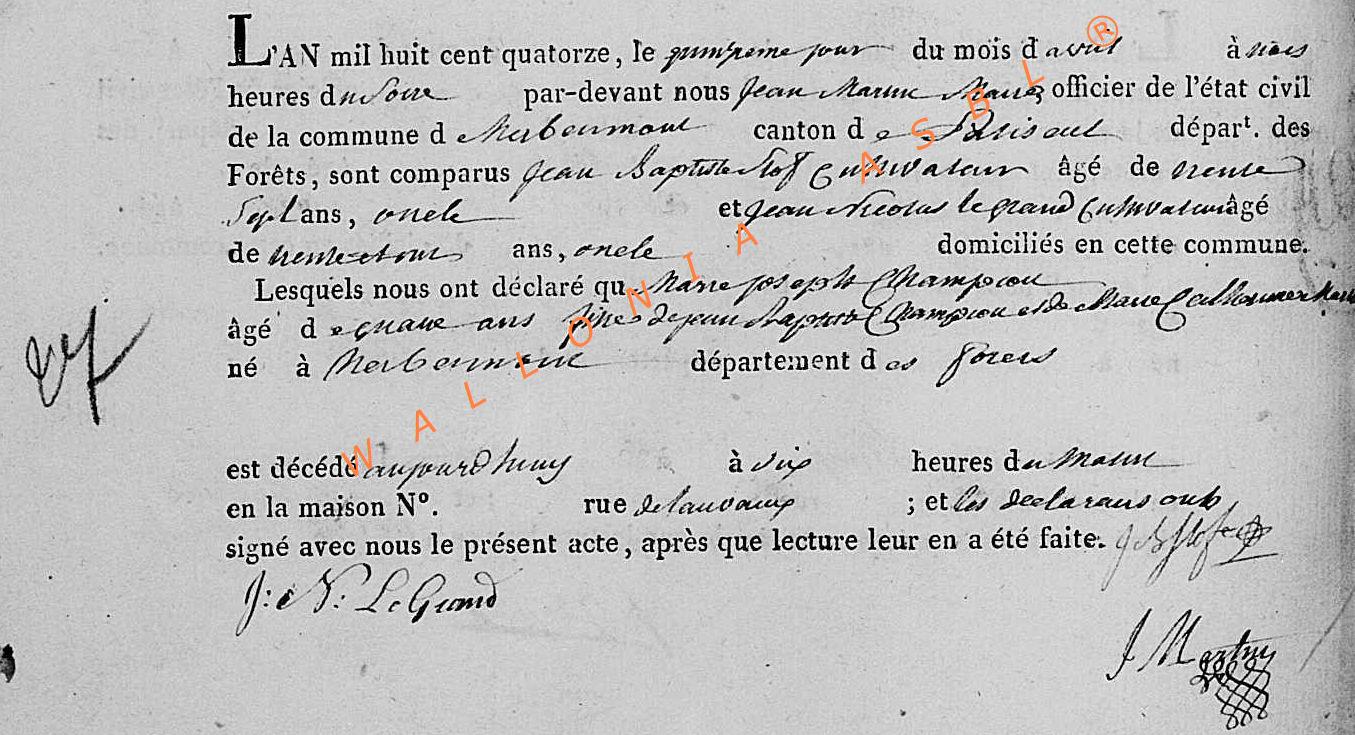 L'AN mil huit cent quatorze, le quinzieme jour du mois d avril à trois
heures du Soire par-devant nous Jean Martin Maire officier de l'état civil
de la commune d herbeumont canton d e Paliseul départ. des
Forêts, sont comparus Jean Baptiste Stof Cultivateur âgé de trente
Sept ans, oncle et Jean Nicolas le grand Cultivateur âgé
de ans, oncle domiciliés en cette commune.
Lesquels nous ont déclaré qu Marie joseph Champion
âgé d e quatre ans fille de jean Baptiste Champion et de Marie Catherine
né à herbeumont département d es forets
est décédé aujourd huy à six heures du Matin
en la maison N°. rue de lauvaux ; et les declarans onts
signé avec nous le présent acte, après que lecture leur en a été faite.
J: N: Le Grand
J Martin
WALLONIA ASBL ®